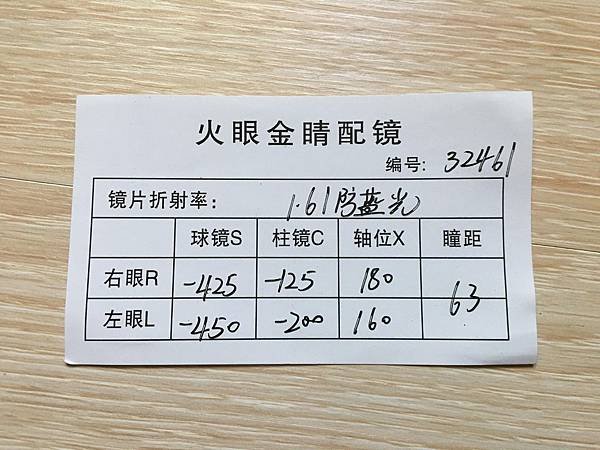 火眼金睛配镜
编号: 32461
镜片折射率: 1.61防蓝光
球镜S 柱镜C 轴位X 瞳距
右眼R -425 -125 180
63
左眼L -450 -200 160